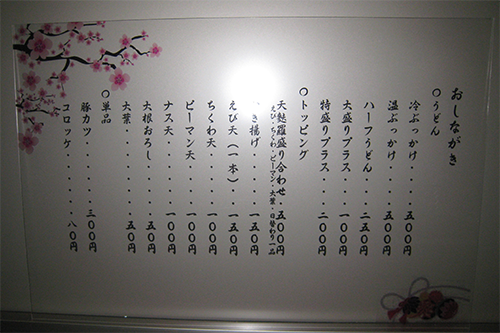 おしながき
〇うどん
冷ぶっかけ・・・・・五〇〇円
温ぶっかけ・・・・・五〇〇円
ハーフうどん・・・・二五〇円
大盛りプラス・・・・一〇〇円
特盛りプラス・・・・二〇〇円
〇トッピング
天麩羅盛り合わせ・五〇〇円
えび・ちくわ・ピーマン・大葉・日替わり一品
き揚げ・・・・・一五〇円
えび天（一本）・・・一五〇円
ちくわ天・・・・・・一〇〇円
ピーマン天・・・・・一〇〇円
ナス天・・・・・・・一〇〇円
大根おろし・・・・・・五〇円
大葉・・・・・・・・・五〇円
〇単品
豚カツ・・・・・・・三〇〇円
コロッケ・・・・・・・八〇円